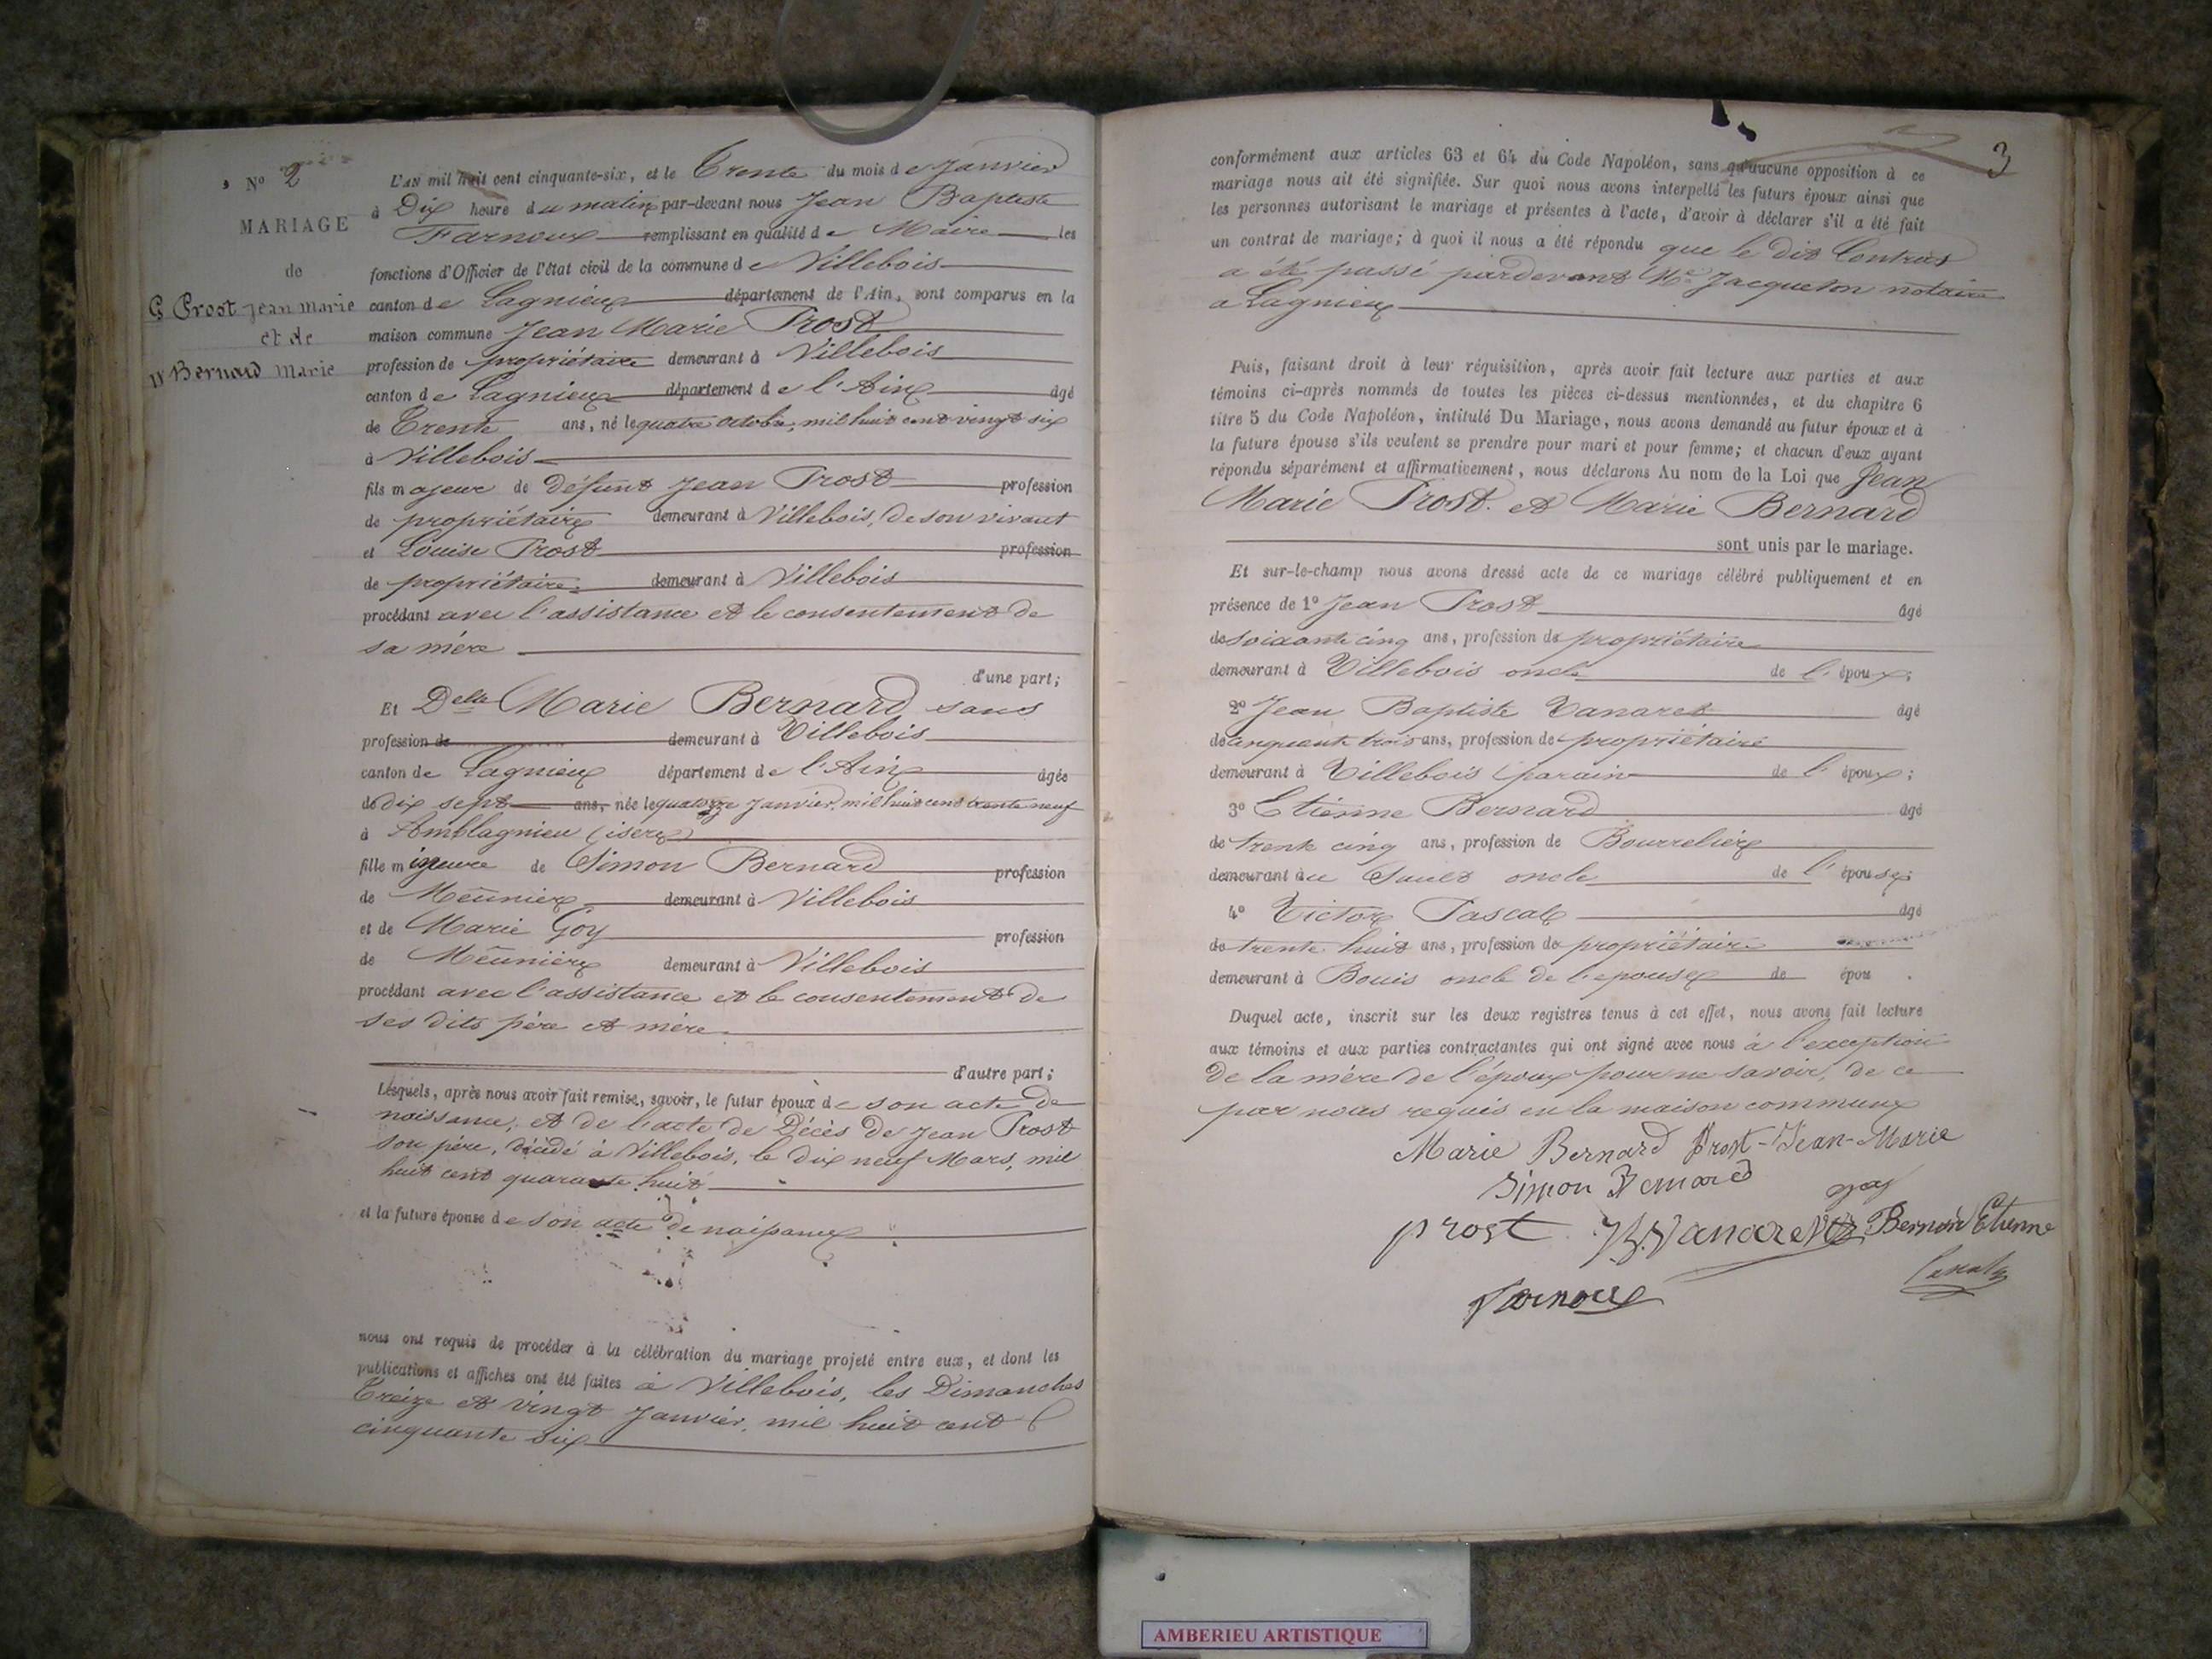 N° 2
MARIAGE
de
G Prost Jean Marie
et de
D Bernard Marie
L'AN mil huit cent cinquante-six, et le Trente du mois de Janvier
à Dix heure du matin par-devant nous Jean Baptiste
Farnoux remplissant en qualité de Maire les
fonctions d'Officier de l'état civil de la commune de Villebois
canton de Lagnieux département de l'Ain, sont comparus en la
maison commune Jean Marie Prost
profession de propriétaire demeurant à Villebois
canton de Lagnieux département de l'Ain âgé
de Trente ans, né le quatre octobre, mil huit cent vingt six
à Villebois
fils majeur de défunt Jean Prost profession
de propriétaire demeurant à Villebois, de son vivant
et Louise Prost profession
de propriétaire demeurant à Villebois
procédant avec l'assistance et le consentement de
sa mère
d'une part;
Et Delle Marie Bernard sans
profession de demeurant à Villebois
canton de Lagnieux département de l'Ain âgée
de dix sept ans, née le quatorze Janvier, mil huit cent trente neuf
à Amblagnieu (isere)
fille mineure de Simon Bernard profession
de Meûnier demeurant à Villebois
et de Marie Goy profession
de Meûnière demeurant à Villebois
procédant avec l'assistance et le consentement de
ses dits père et mère
d'autre part;
Lesquels, après nous avoir fait remise, savoir, le futur époux de son acte de
naissance, et de l'acte de Décès de Jean Prost
son père, décédé à Villebois, le dix neuf Mars, mil
huit cent quarante huit
et la future épouse de son acte de naissance
nous ont requis de procéder à la célébration du mariage projeté entre eux, et dont les
publications et affiches ont été faites à Villebois, les Dimanches
Treize et vingt Janvier, mil huit cent
cinquante six
3
conformément aux articles 63 et 64 du Code Napoléon, sans qu'aucune opposition à ce
mariage nous ait été signifiée. Sur quoi nous avons interpellé les futurs époux ainsi que
les personnes autorisant le mariage et présentes à l'acte, d'avoir à déclarer s'il a été fait
un contrat de mariage; à quoi il nous a été répondu que le dit Contrat
a été passé pardevant Me Jacqueton notaire
a Lagnieux
Puis, faisant droit à leur réquisition, après avoir fait lecture aux parties et aux
témoins ci-après nommés de toutes les pièces ci-dessus mentionnées, et du chapitre 6
titre 5 du Code Napoléon, intitulé Du Mariage, nous avons demandé au futur époux et à
la future épouse s'ils veulent se prendre pour mari et pour femme; et chacun d'eux ayant
répondu séparément et affirmativement, nous déclarons Au nom de la Loi que Jean
Marie Prost. et Marie Bernard
sont unis par le mariage.
Et sur-le-champ nous avons dressé acte de ce mariage célébré publiquement et en
présence de 1° Jean Prost âgé
de soixante cinq ans, profession de propriétaire
demeurant à Villebois oncle de l'époux;
2° Jean Baptiste Vanaret âgé
de cinquante trois ans, profession de propriétaire
demeurant à Villebois parain de l'époux;
3° Etienne Bernard âgé
de trente cinq ans, profession de Bourrelier
demeurant au Sault oncle de l'épouse;
4° Victor Pascal âgé
de trente huit ans, profession de propriétaire
demeurant à Bouis oncle de l'epouse de épou .
Duquel acte, inscrit sur les deux registres tenus à cet effet, nous avons fait lecture
aux témoins et aux parties contractantes qui ont signé avec nous à l'exception
de la mère de l'époux pour ne savoir, de ce
par nous requis en la maison commune
Marie Bernard Prost-Jean-Marie
Simon Bernard goy
prost JB. Vanaret Bernard Etienne
Farnoux
AMBERIEU ARTISTIQUE